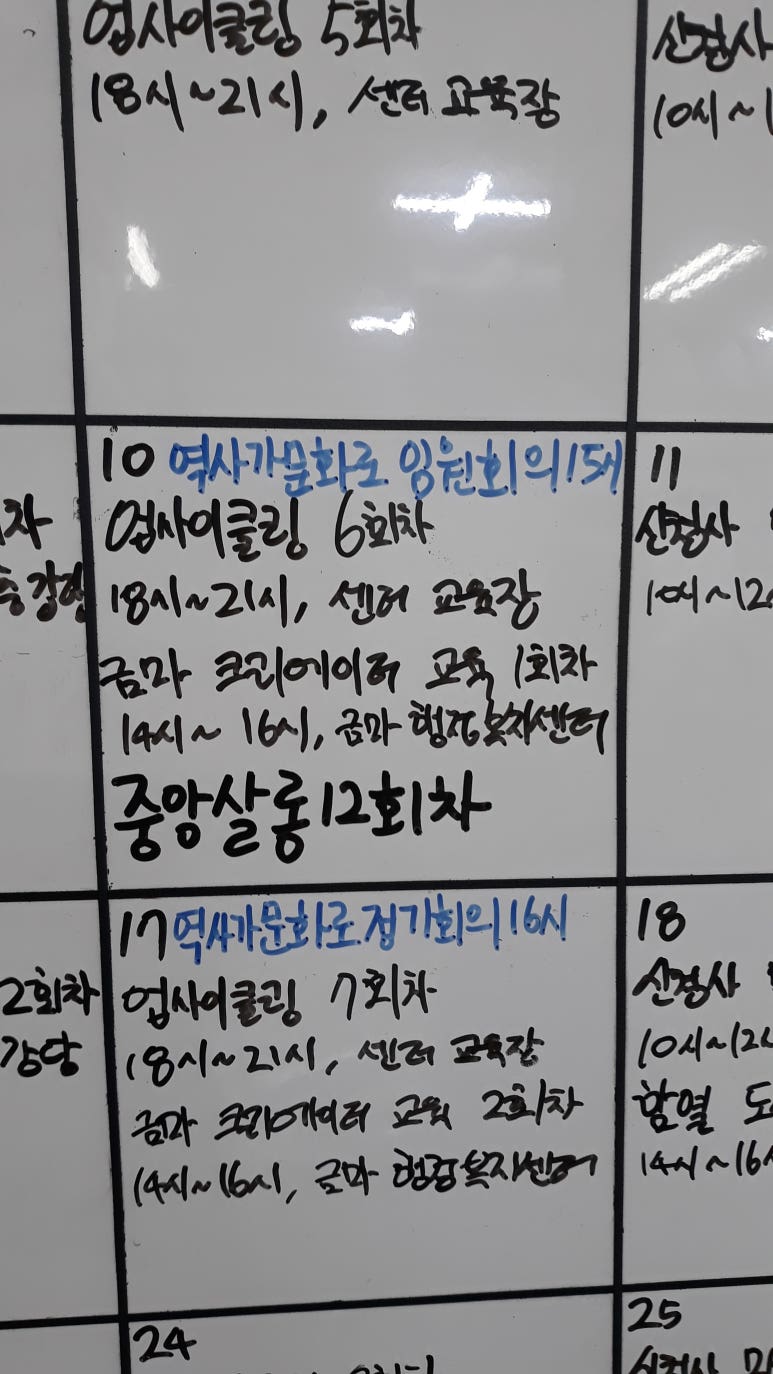 업사이클링 5회차
18시~21시, 센터 교육장
산점사
10시~1
10 역사가문화로 임원회의 15시
업사이클링 6회차
18시~21시, 센터 교육장
금마 크리에이터 교육 1회차
14시~16시, 금마 행정복지센터
중앙살롱 12회차
11
산점사
10시~12시
17 역사가문화로 정기회의 16시
업사이클링 7회차
18시~21시, 센터 교육장
금마 크리에이터 교육 2회차
14시~16시, 금마 행정복지센터
2회차
강당
18
산점사
10시~12시
함열 도
14시~16시
24
25